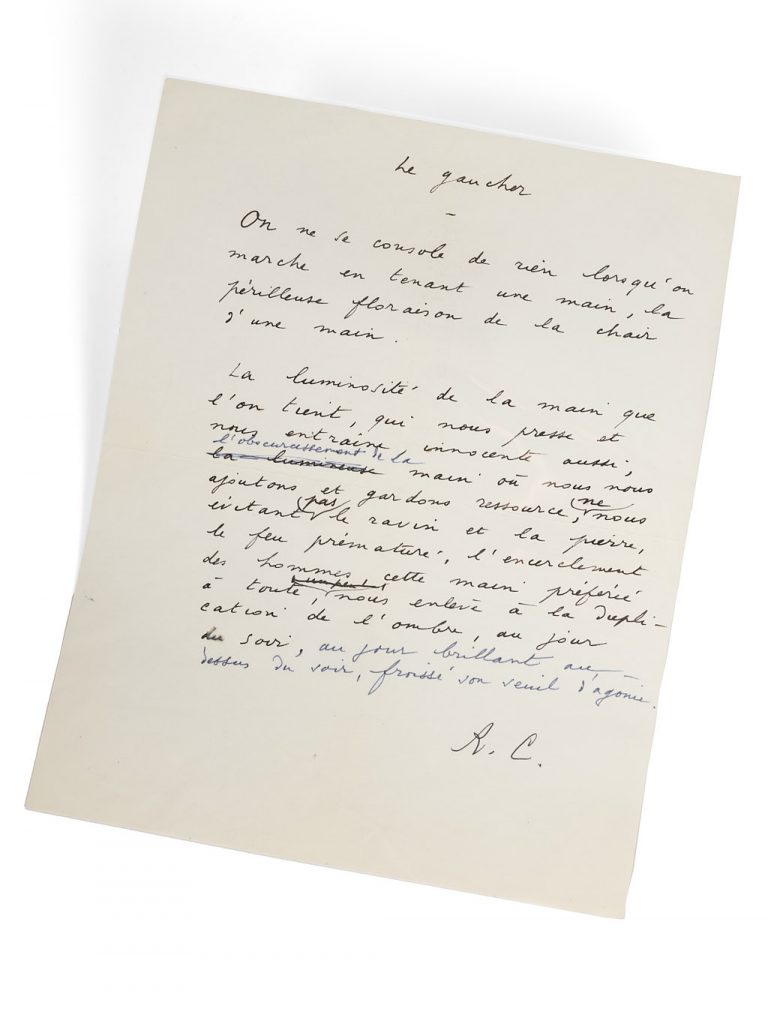 Le gaucher
–
On ne se console de rien lorsqu'on
marche en tenant une main, la
périlleuse floraison de la chair
d'une main.
La luminosité de la main que
l'on tient, qui nous presse et
nous entraîne innocente aussi,
l'obscurcissement de la
la lumineuse main où nous nous
ajoutons et gardons ressource, ne nous
évitant pas le ravin et la pierre,
le feu prématuré, l'encerclement
des hommes cette main préférée
à toute, nous enlève à la dupli-
cation de l'ombre, au jour
du soir, au jour brillant au-
dessus du soir, froissé son seuil d'agonie.
R. C.